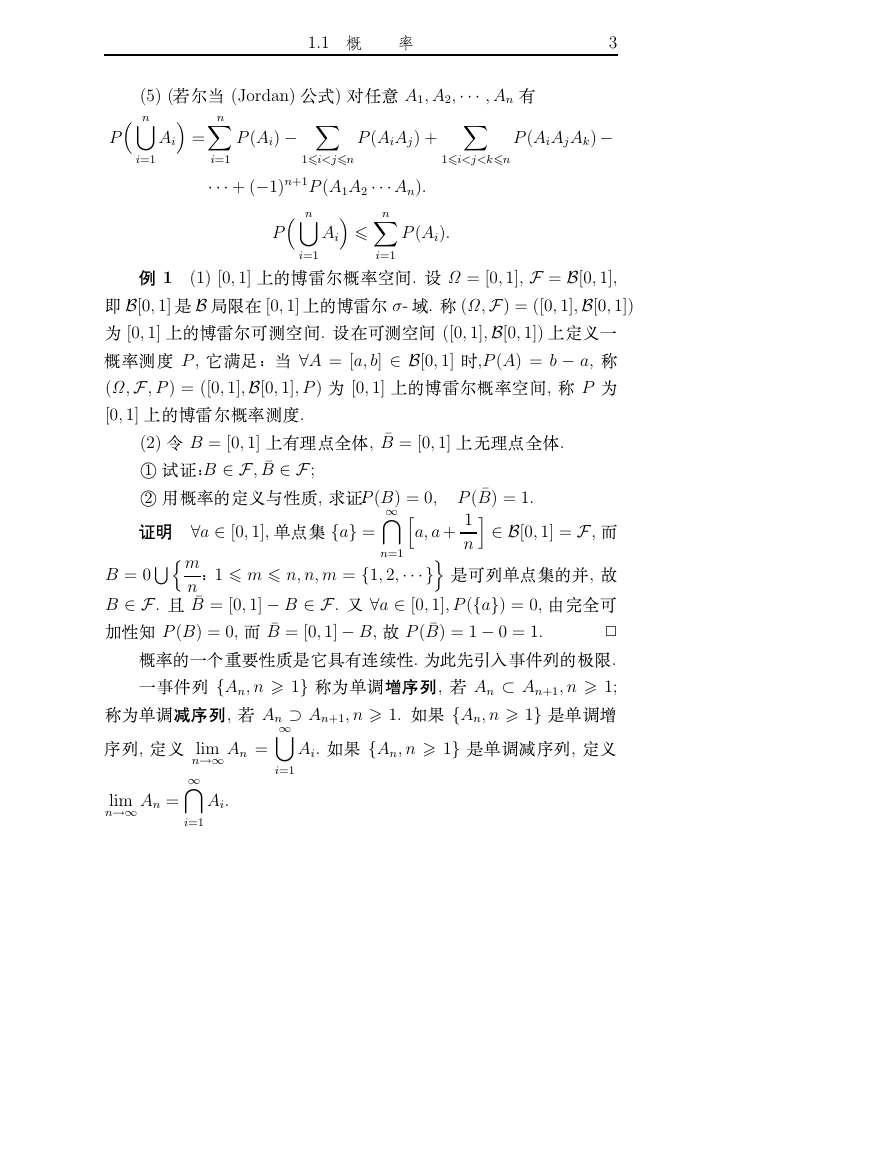 1.1 概 率 3
(5) (若尔当 (Jordan) 公式) 对任意 A₁, A₂, ⋯ , Aₙ 有
P(⋃_{i=1}^{n} Aᵢ) = ∑_{i=1}^{n} P(Aᵢ) − ∑_{1⩽i<j⩽n} P(AᵢAⱼ) + ∑_{1⩽i<j<k⩽n} P(AᵢAⱼAₖ) −
⋯ + (−1)ⁿ⁺¹P(A₁A₂ ⋯ Aₙ).
P(⋃_{i=1}^{n} Aᵢ) ⩽ ∑_{i=1}^{n} P(Aᵢ).
例 1 (1) [0, 1] 上的博雷尔概率空间. 设 Ω = [0, 1], ℱ = ℬ[0, 1],
即 ℬ[0, 1] 是 ℬ 局限在 [0, 1] 上的博雷尔 σ- 域. 称 (Ω, ℱ) = ([0, 1], ℬ[0, 1])
为 [0, 1] 上的博雷尔可测空间. 设在可测空间 ([0, 1], ℬ[0, 1]) 上定义一
概率测度 P, 它满足: 当 ∀A = [a, b] ∈ ℬ[0, 1] 时,P(A) = b − a, 称
(Ω, ℱ, P) = ([0, 1], ℬ[0, 1], P) 为 [0, 1] 上的博雷尔概率空间, 称 P 为
[0, 1] 上的博雷尔概率测度.
(2) 令 B = [0, 1] 上有理点全体, B̄ = [0, 1] 上无理点全体.
① 试证:B ∈ ℱ, B̄ ∈ ℱ;
② 用概率的定义与性质, 求证P(B) = 0, P(B̄) = 1.
证明 ∀a ∈ [0, 1], 单点集 {a} = ⋂_{n=1}^{∞} [a, a + 1/n] ∈ ℬ[0, 1] = ℱ, 而
B = 0 ⋃ {m/n: 1 ⩽ m ⩽ n, n, m = {1, 2, ⋯}} 是可列单点集的并, 故
B ∈ ℱ. 且 B̄ = [0, 1] − B ∈ ℱ. 又 ∀a ∈ [0, 1], P({a}) = 0, 由完全可
加性知 P(B) = 0, 而 B̄ = [0, 1] − B, 故 P(B̄) = 1 − 0 = 1. □
概率的一个重要性质是它具有连续性. 为此先引入事件列的极限.
一事件列 {Aₙ, n ⩾ 1} 称为单调增序列, 若 Aₙ ⊂ Aₙ₊₁, n ⩾ 1;
称为单调减序列, 若 Aₙ ⊃ Aₙ₊₁, n ⩾ 1. 如果 {Aₙ, n ⩾ 1} 是单调增
序列, 定义 lim_{n→∞} Aₙ = ⋃_{i=1}^{∞} Aᵢ. 如果 {Aₙ, n ⩾ 1} 是单调减序列, 定义
lim_{n→∞} Aₙ = ⋂_{i=1}^{∞} Aᵢ.